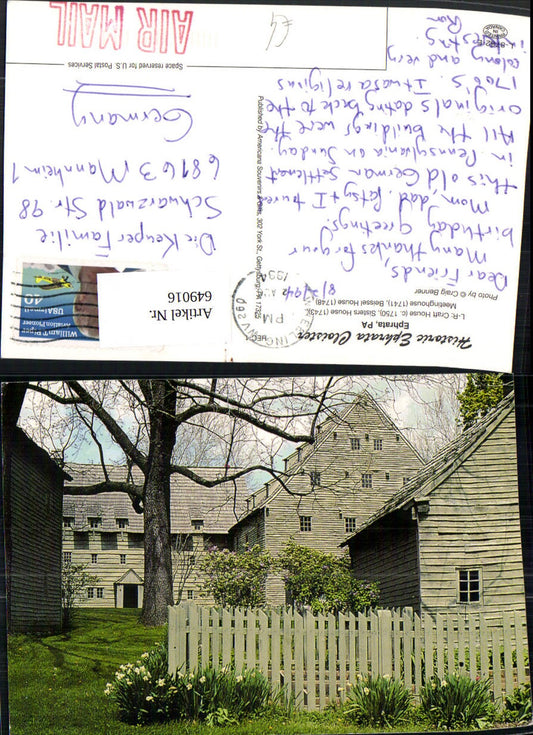 Historic Ephrata Cloister
Ephrata, PA
L-R: Craft House (1750), Sisters House (1743),
Meetinghouse (1741), Beissel House (1748)
Photo by © Craig Benner
8/2/94
Dear Friends,
Many thanks for your
birthday greetings!
Mom, dad, Patsy + I tured
this old German Settlement
in Pennsylvania on Sunday.
All the buildings were the
originals dating back to the
1700's. It was a religius
colony and very
interesting.
Ron
Published by Americana Souvenirs & Gifts, 302 York St., Gettysburg, PA 17325
Space reserved for U.S. Postal Services
AIR MAIL
PM
1994
USAirmail
Aviation Pioneer
Die Keuper Familie
Schwarzwald Str. 98
68163 Mannheim 1
Germany
Artikel Nr.
649016